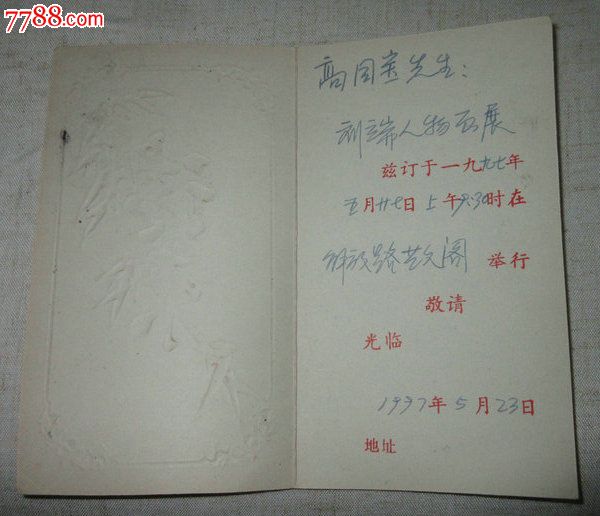 7788.com
中国收藏热线
高国宝先生：
刘端人物画展
兹订于一九九七年
五月廿七日上午9:30时在
解放路艺文阁 举行
敬请
光临
1997年5月23日
地址